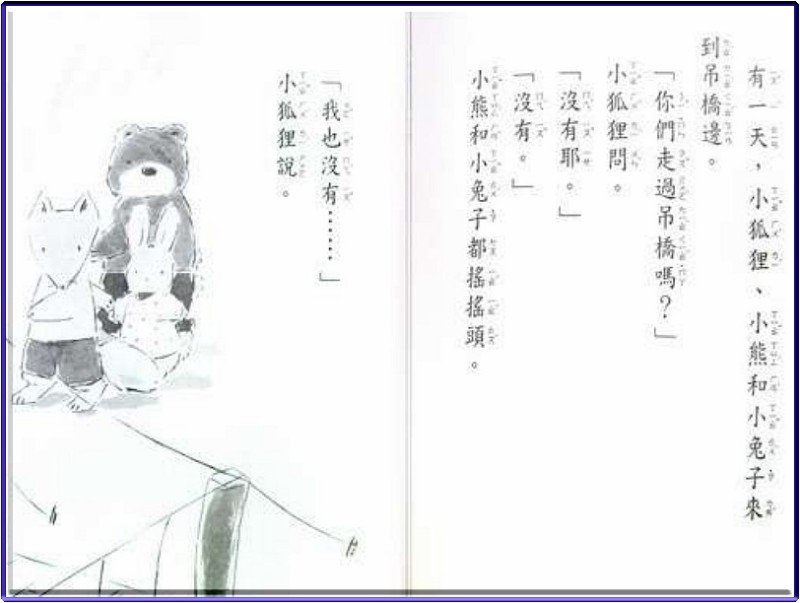 有一天，小狐狸、小熊和小兔子來
到吊橋邊。
「你們走過吊橋嗎？」
小狐狸問。
「沒有耶。」
「沒有。」
小熊和小兔子都搖搖頭。
「我也沒有……」
小狐狸說。